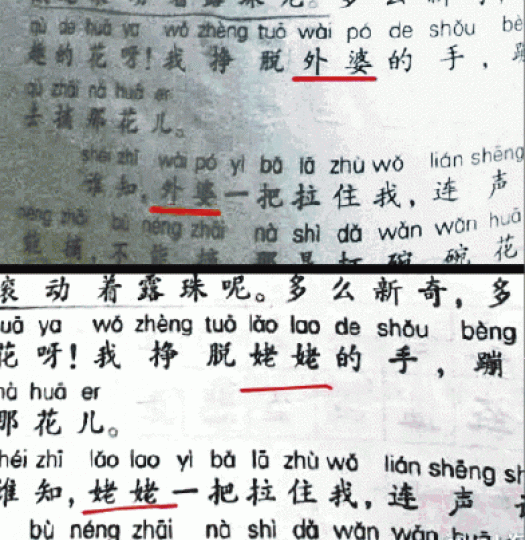 qù de huā ya wǒ zhèng tuō wài pó de shǒu bè
趣的花呀！我挣脱外婆的手，
qù zhāi nà huā er
去摘那花儿。
shéi zhī wài pó yì bǎ lā zhù wǒ lián shēng
谁知，外婆一把拉住我，连声
néng zhāi bù néng zhāi nà shì dǎ wǎn wǎn huā
能摘，不能摘，那是打碗碗花
滚动着露珠呢。多么新奇，多
uā ya wǒ zhèng tuō lǎo lao de shǒu bèng
花呀！我挣脱姥姥的手，蹦
nà huā er
那花儿。
héi zhī lǎo lao yì bǎ lā zhù wǒ lián shēng sh
谁知，姥姥一把拉住我，连声
bù néng zhāi nà shì dǎ wǎn wǎn huā